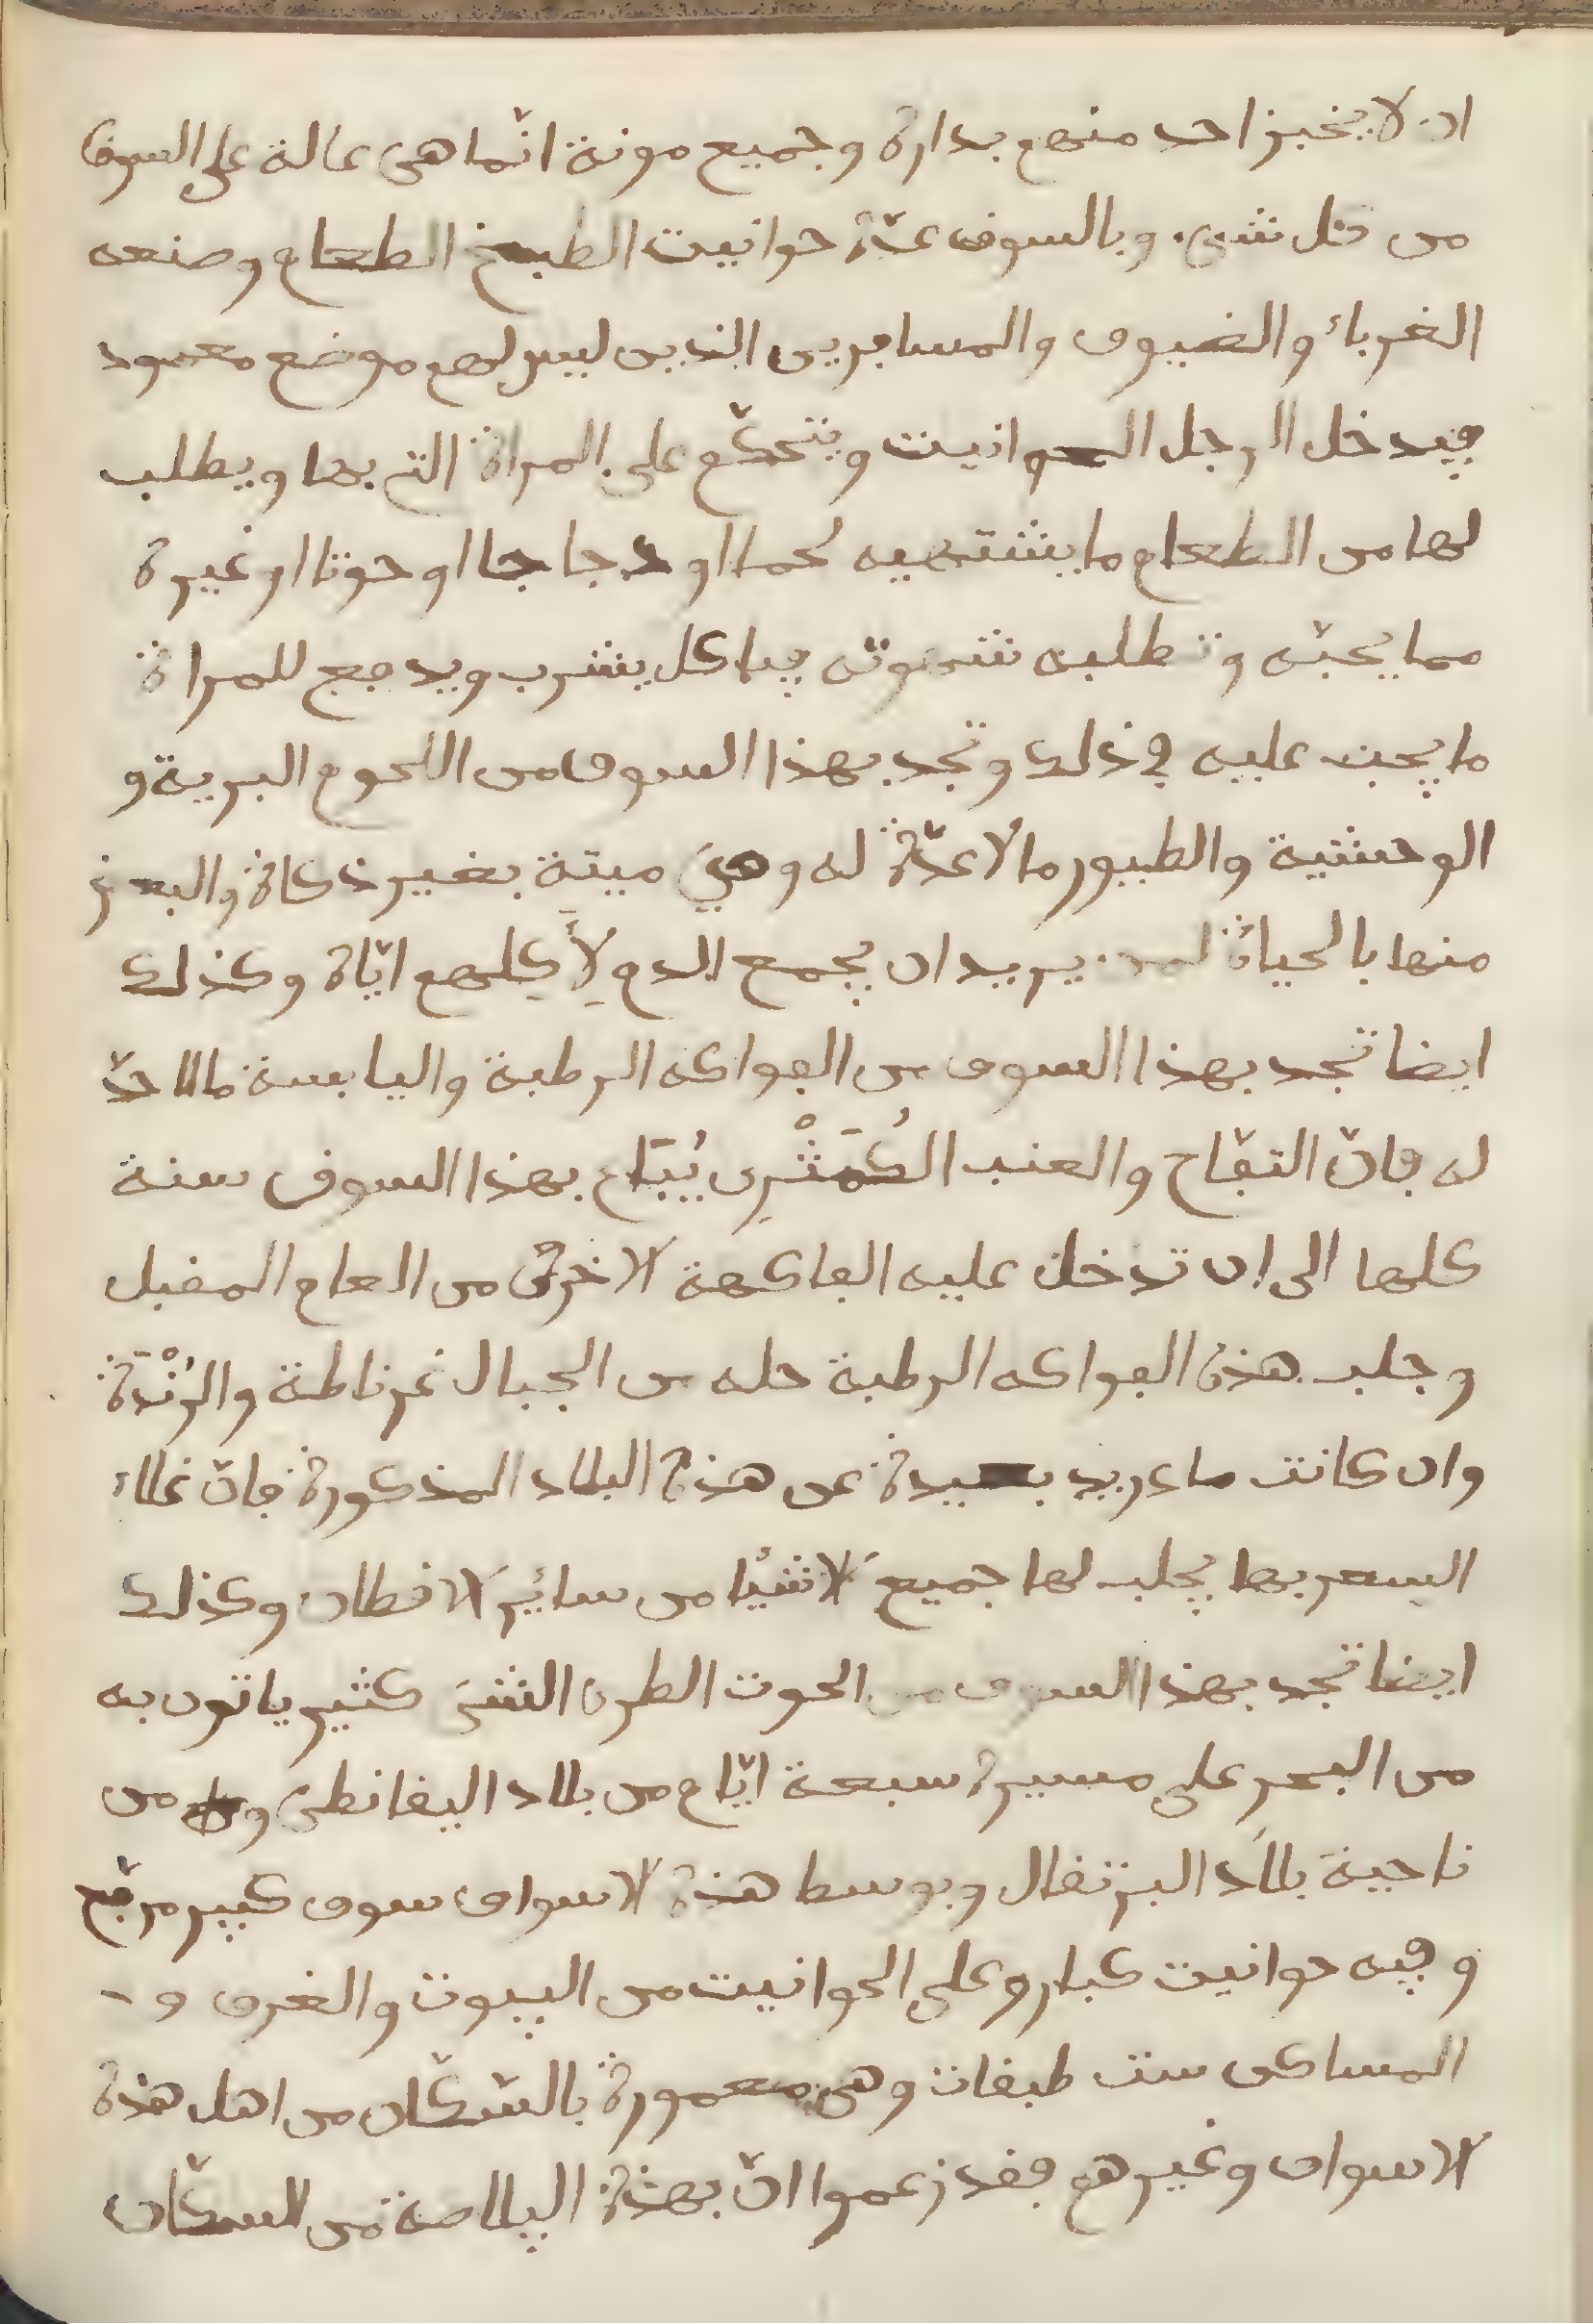 ان لا يخبز احد منهم بداره وجميع مونة انّما هى عالة على السوق
من كل شيء. وبالسوق عدّة حوانيت الطبخ الطعام وصنعه
الغرباء والضيوف والمسافرين الذين ليس لهم موضع معهود
فيدخل الرجل الحوانيت ويتحكّم على المراة التى بها ويطلب
لها من الطعام ما يشتهيه لحما او دجاجا او حوتا او غيره
مما يحبّه وتطلبه شهوته فياكل يشرب ويدفع للمراة
ما يجب عليه في ذلك وتجد بهذا السوق من اللحوم البرية و
الوحشية والطيور ما لا عدّة له وهي ميتة بغير ذكاة والبعض
منها بالحياة لمن يريد ان يجمع الدم لأكلهم ايّاه وكذلك
ايضا تجد بهذا السوق من الفواكه الرطبة واليابسة ما لا حدّ
له فانّ التفّاح والعنب الكُمَثْرِى يُبَاع بهذا السوق سنة
كلها الى ان تدخل عليه الفاكهة الاخرى من العام المقبل
وجلب هذه الفواكه الرطبة حله من الجبال غرناطة والرُنْدَة
وان كانت مادريد بعيدة عن هذه البلاد المذكورة فانّ غلاء
السعر بها يجلب لها جميع الاشيَا من سائر الاقطار وكذلك
ايضا تجد بهذا السوق من الحوت الطرى الشىَ كثير ياتون به
من البحر على مسيرة سبعة ايّام من بلاد اليقانطى و من
ناحية بلاد البرتقال وبوسط هذه الاسواق سوق كبير مربّع
وفيه حوانيت كبار وعلى الحوانيت من البيوت والغرف و -
المساكن ست طبقات وهى معمورة بالسّكّان من اهل هذه
الاسواق وغيرهم فقد زعموا انّ بهذه البلاصة من السكّان